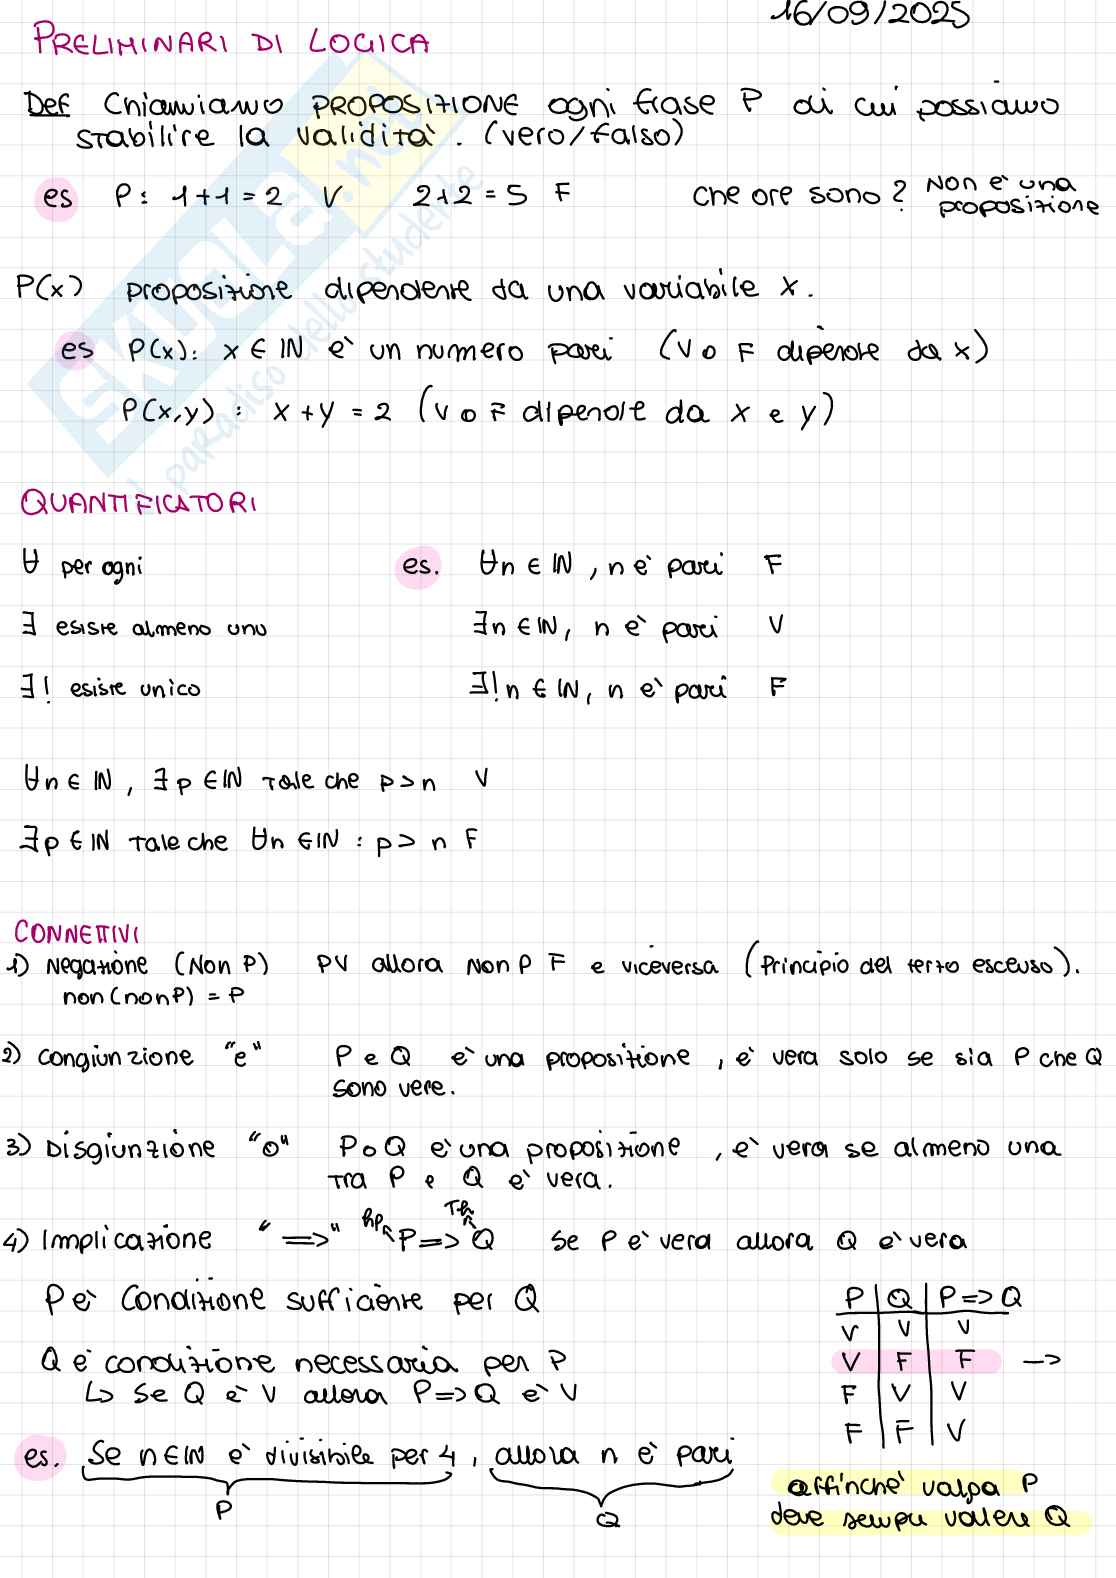 16/09/2025
PRELIMINARI DI LOGICA
Def Chiamiamo PROPOSIZIONE ogni frase P di cui possiamo
stabilire la validità. (vero/falso)
es P: 1+1=2 V 2+2=5 F Che ore sono? Non è una
proposizione
P(x) proposizione dipendente da una variabile x.
es P(x): x ∈ ℕ è un numero pari (V o F dipende da x)
P(x,y): x+y=2 (V o F dipende da x e y)
QUANTIFICATORI
∀ per ogni es. ∀n ∈ ℕ, n è pari F
∃ esiste almeno uno ∃n ∈ ℕ, n è pari V
∃! esiste unico ∃!n ∈ ℕ, n è pari F
∀n ∈ ℕ, ∃p ∈ ℕ tale che p>n V
∃p ∈ ℕ tale che ∀n ∈ ℕ: p>n F
CONNETTIVI
1) Negazione (Non P) PV allora Non P F e viceversa (Principio del terzo escluso).
non(nonP) = P
2) Congiunzione "e" P e Q è una proposizione, è vera solo se sia P che Q
sono vere.
3) Disgiunzione "o" P o Q è una proposizione, è vera se almeno una
tra P e Q è vera.
hp Th
4) Implicazione "=>" P=>Q Se P è vera allora Q è vera
P è condizione sufficiente per Q
Q è condizione necessaria per P
↳ Se Q è V allora P=>Q è V
P Q P=>Q
V V V
V F F ->
F V V
F F V
es. Se n∈ℕ è divisibile per 4, allora n è pari
P Q
affinchè valga P
deve sempre valere Q
SKUOLA.net
il paradiso dello studente